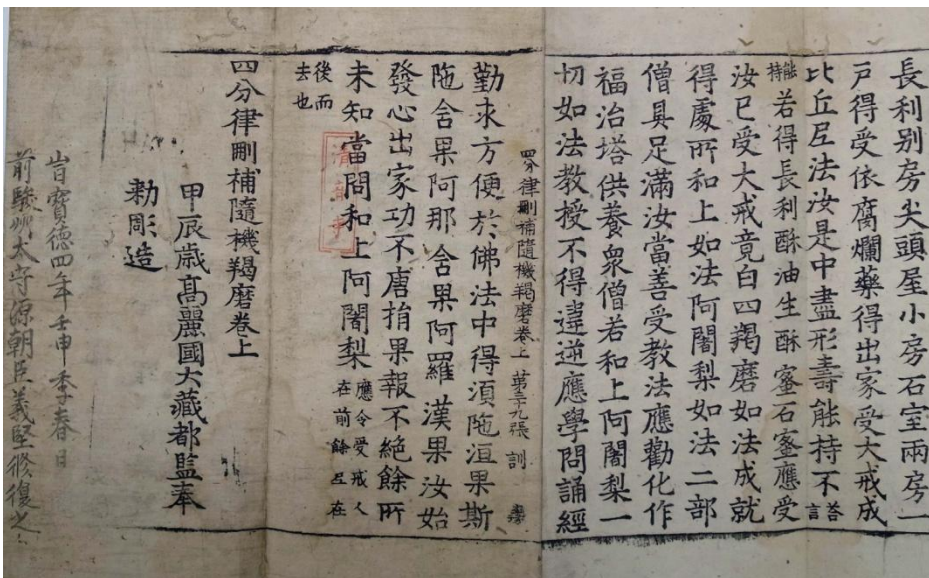 長利别房尖頭屋小房石室兩房一
戶得受依腐爛藥得出家受大戒成
比丘尼法汝是中盡形壽能持不答言
能持若得長利酥油生酥蜜石蜜應受
汝已受大戒竟白四羯磨如法成就
得處所和上如法阿闍梨如法二部
僧具足滿汝當善受教法應勸化作
福治塔供養衆僧若和上阿闍梨一
切如法教授不得違逆應學問誦經
四分律刪補隨機羯磨卷上 第三十九張 訓
勤求方便於佛法中得須陁洹果斯
陁舍果阿那舍果阿羅漢果汝始
發心出家功不唐捐果報不絕餘所
未知當問和上阿闍梨應令受戒人在前餘尼在
後而去也
四分律刪補隨機羯磨卷上
甲辰歳髙麗國大藏都監奉
勅彫造
旹寶德四年壬申季春日
前駿州太守源朝臣義堅修復之